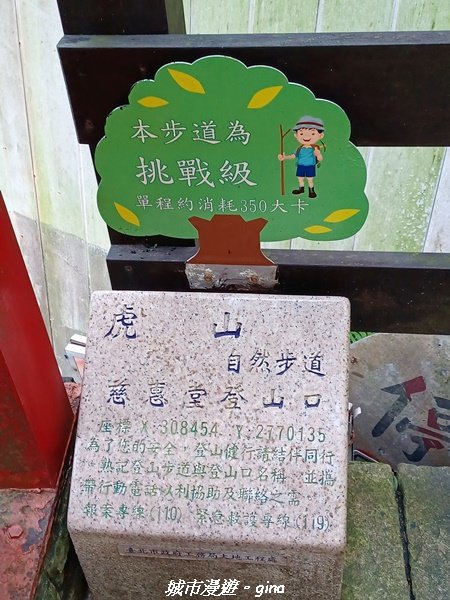 本步道為
挑戰級
單程約消耗350大卡
虎山
自然步道
慈惠堂登山口
座標 X:308454 Y:2770135
為了您的安全，登山健行請結伴同行
，熟記登山步道與登山口名稱，並攜
帶行動電話以利協助及聯絡之需。
報案專線(110) 緊急救護專線(119)
臺北市政府工務局大地工程處
城市漫遊。gina